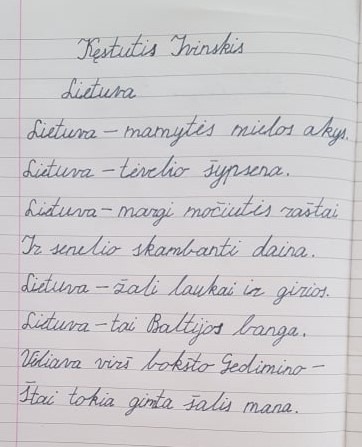 Kęstutis Ivinskis
Lietuva
Lietuva – mamytės mielos akys.
Lietuva – tėvelio šypsena.
Lietuva – margi močiutės raštai
Ir senelio skambanti daina.
Lietuva – žali laukai ir girios.
Lietuva – tai Baltijos banga.
Vėliava virš bokšto Gedimino –
Štai tokia gimta šalis mana.